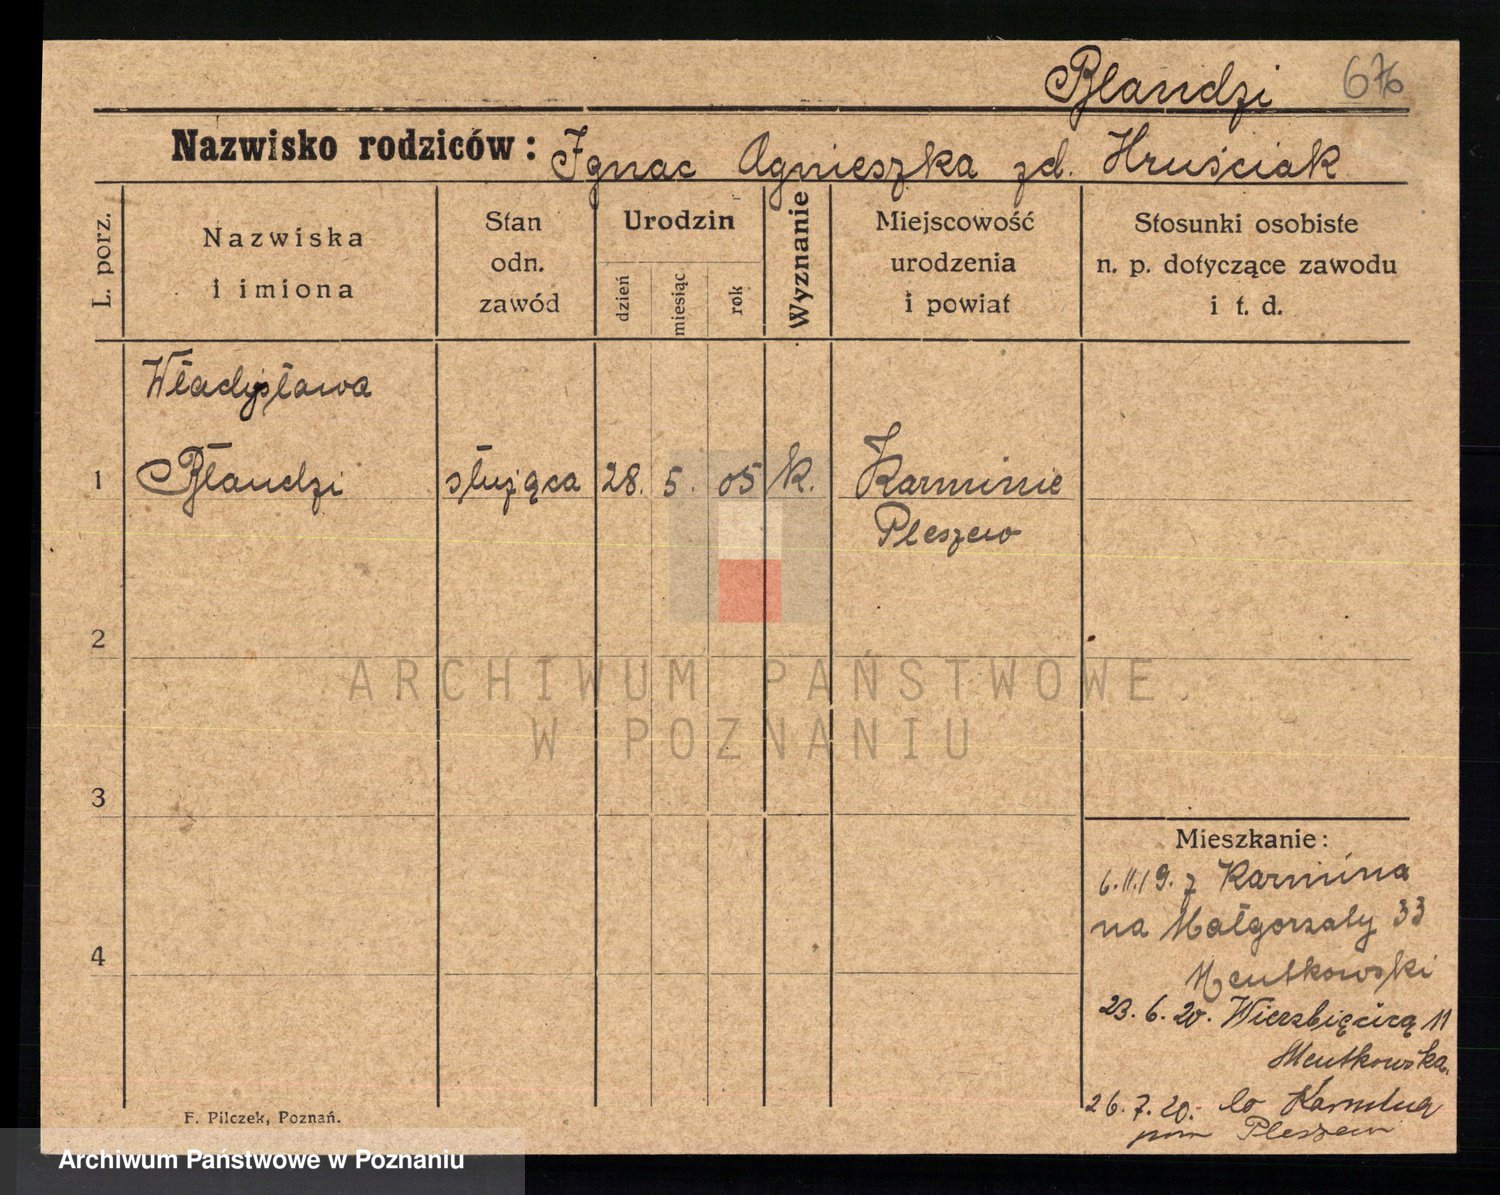 Blandzi 676
Nazwisko rodziców: Ignac Agnieszka zd. Hruściak
L. porz.
Nazwiska
i imiona
Stan
odn.
zawód
Urodzin
dzień
miesiąc
rok
Wyznanie
Miejscowość
urodzenia
i powiat
Stosunki osobiste
n. p. dotyczące zawodu
i t. d.
Władysława
1 Błandzi służąca 28. 5. 05 k. Karminie
Pleszew
2
ARCHIWUM PAŃSTWOWE
W POZNANIU
3
Mieszkanie:
6.11.19. z Karmina
na Małgorzaty 33
4
23. 6. 20. Wierzbięcicą 11
Meutkowska.
26. 7. 20. do Karmina
pow Pleszew
F. Pilczek, Poznań.
Archiwum Państwowe w Poznaniu